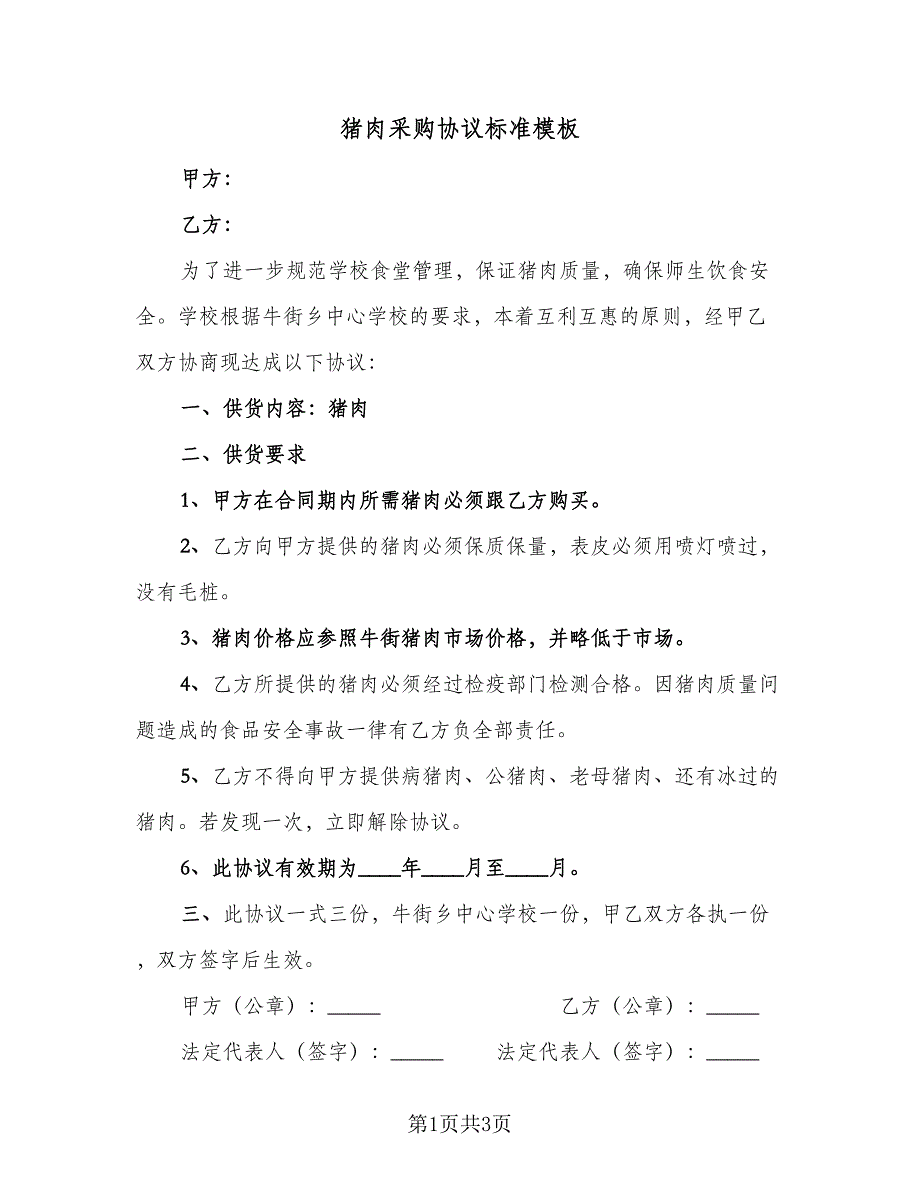 猪肉采购协议标准模板
甲方：
乙方：
为了进一步规范学校食堂管理，保证猪肉质量，确保师生饮食安
全。学校根据牛街乡中心学校的要求，本着互利互惠的原则，经甲乙
双方协商现达成以下协议：
一、供货内容：猪肉
二、供货要求
1、甲方在合同期内所需猪肉必须跟乙方购买。
2、乙方向甲方提供的猪肉必须保质保量，表皮必须用喷灯喷过，
没有毛桩。
3、猪肉价格应参照牛街猪肉市场价格，并略低于市场。
4、乙方所提供的猪肉必须经过检疫部门检测合格。因猪肉质量问
题造成的食品安全事故一律有乙方负全部责任。
5、乙方不得向甲方提供病猪肉、公猪肉、老母猪肉、还有冰过的
猪肉。若发现一次，立即解除协议。
6、此协议有效期为____年____月至____月。
三、此协议一式三份，牛街乡中心学校一份，甲乙双方各执一份
，双方签字后生效。
甲方（公章）：_____ 乙方（公章）：_____
法定代表人（签字）：_____ 法定代表人（签字）：_____
第1页共3页